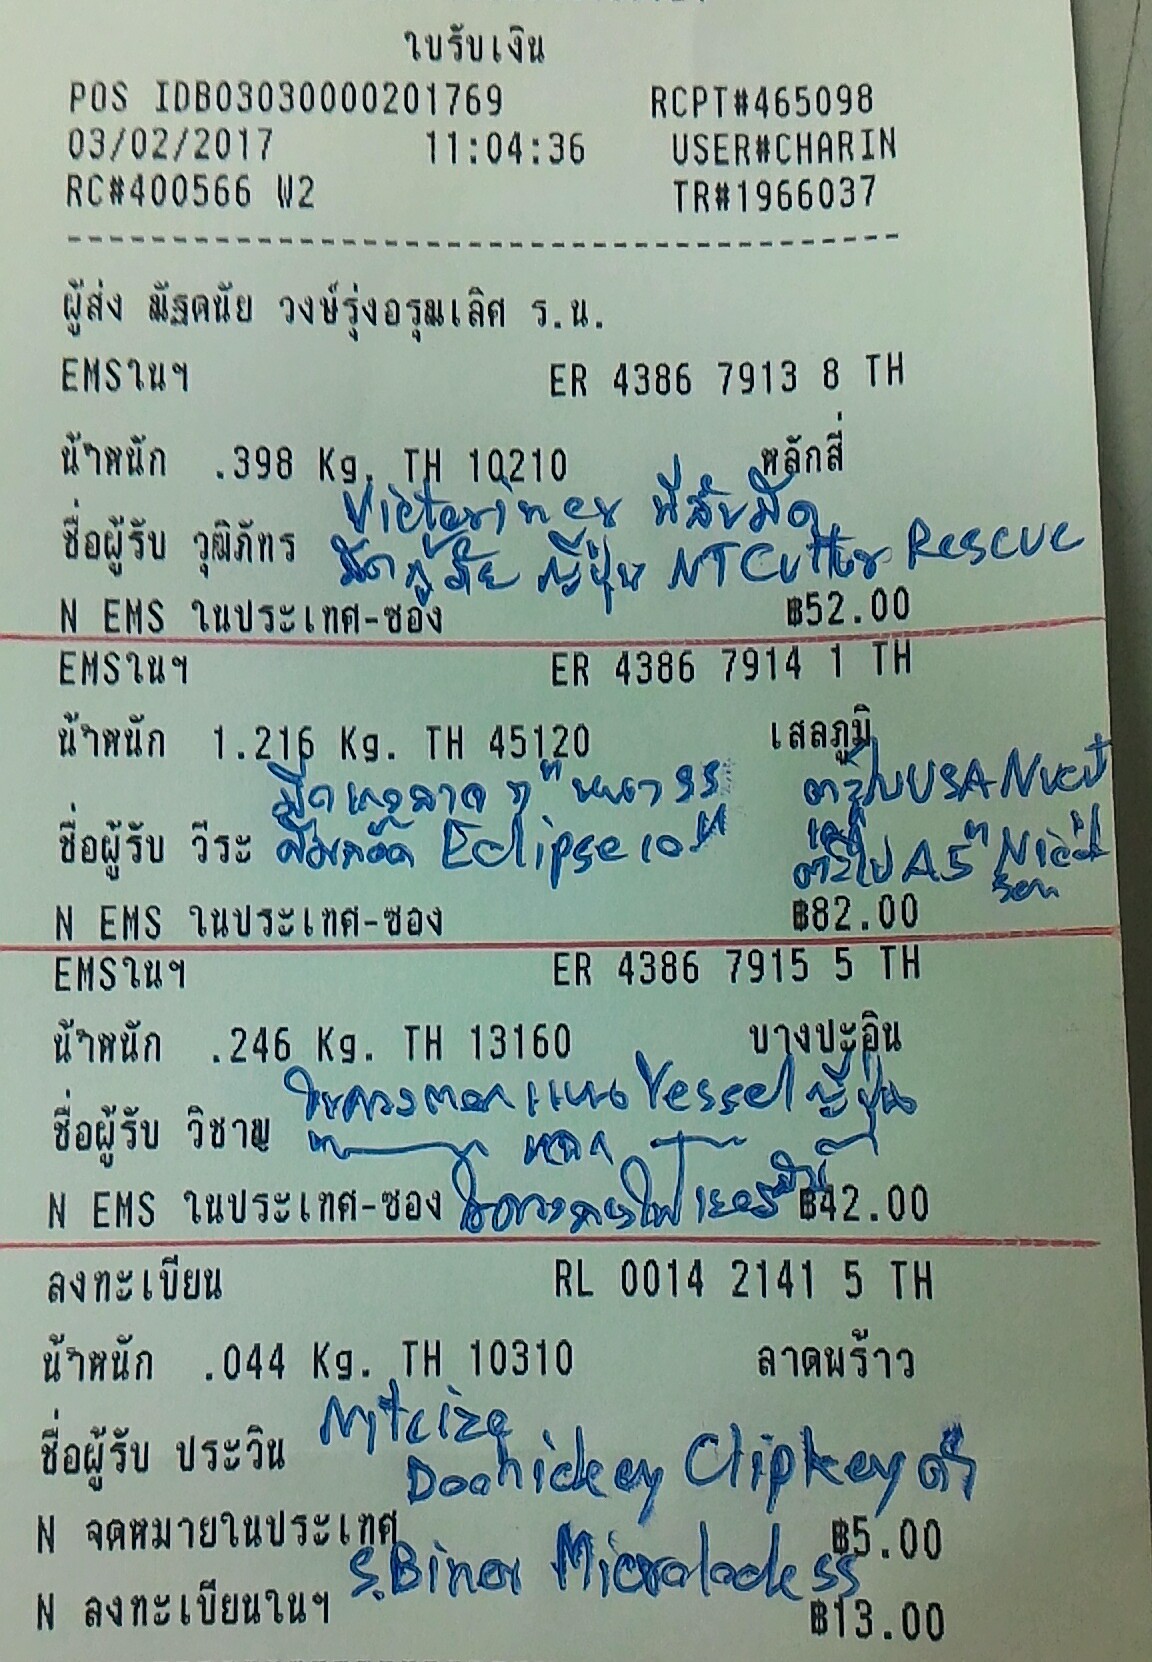 ใบรับเงิน
POS IDB03030000201769 RCPT#465098
03/02/2017 11:04:36 USER#CHARIN
RC#400566 W2 TR#1966037
ผู้ส่ง ณัฐดนัย วงษ์รุ่งอรุณเลิศ ร.น.
EMSในฯ ER 4386 7913 8 TH
น้ำหนัก .398 Kg. TH 10210 หลักสี่
Victorinox ที่ลับมีด
ชื่อผู้รับ วุฒิภัทร มีดกู้ภัย ญี่ปุ่น NT Cutter Rescue
N EMS ในประเทศ-ซอง ฿52.00
EMSในฯ ER 4386 7914 1 TH
น้ำหนัก 1.216 Kg. TH 45120 เสลภูมิ
ตะไบ USA
ชื่อผู้รับ วีระ Eclipse 10" ตะไบ
N EMS ในประเทศ-ซอง ฿82.00
EMSในฯ ER 4386 7915 5 TH
น้ำหนัก .246 Kg. TH 13160 บางปะอิน
ไขควงตอกแกน Vessel ญี่ปุ่น
ชื่อผู้รับ วิชาญ
N EMS ในประเทศ-ซอง ฿42.00
ลงทะเบียน RL 0014 2141 5 TH
น้ำหนัก .044 Kg. TH 10310 ลาดพร้าว
ชื่อผู้รับ ประวิน
Doohickey Clipkey ดำ
N จดหมายในประเทศ ฿5.00
S.Biner Microlock SS
N ลงทะเบียนในฯ ฿13.00